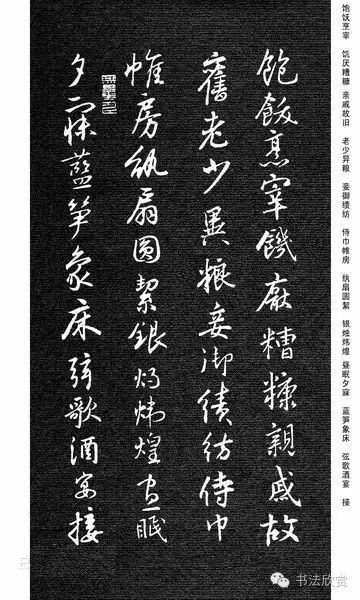 饱饫烹宰 饥厌糟糠 亲戚故旧 老少异粮 妾御绩纺 侍巾帷房 纨扇圆絜 银烛炜煌 昼眠夕寐 蓝笋象床 弦歌酒宴 接
飽飫烹宰饑厭糟糠親戚故
舊老少異糧妾御績紡侍巾
帷房紈扇圓絜銀燭煒煌晝眠
夕寐藍笋象床弦歌酒宴接
书法欣赏